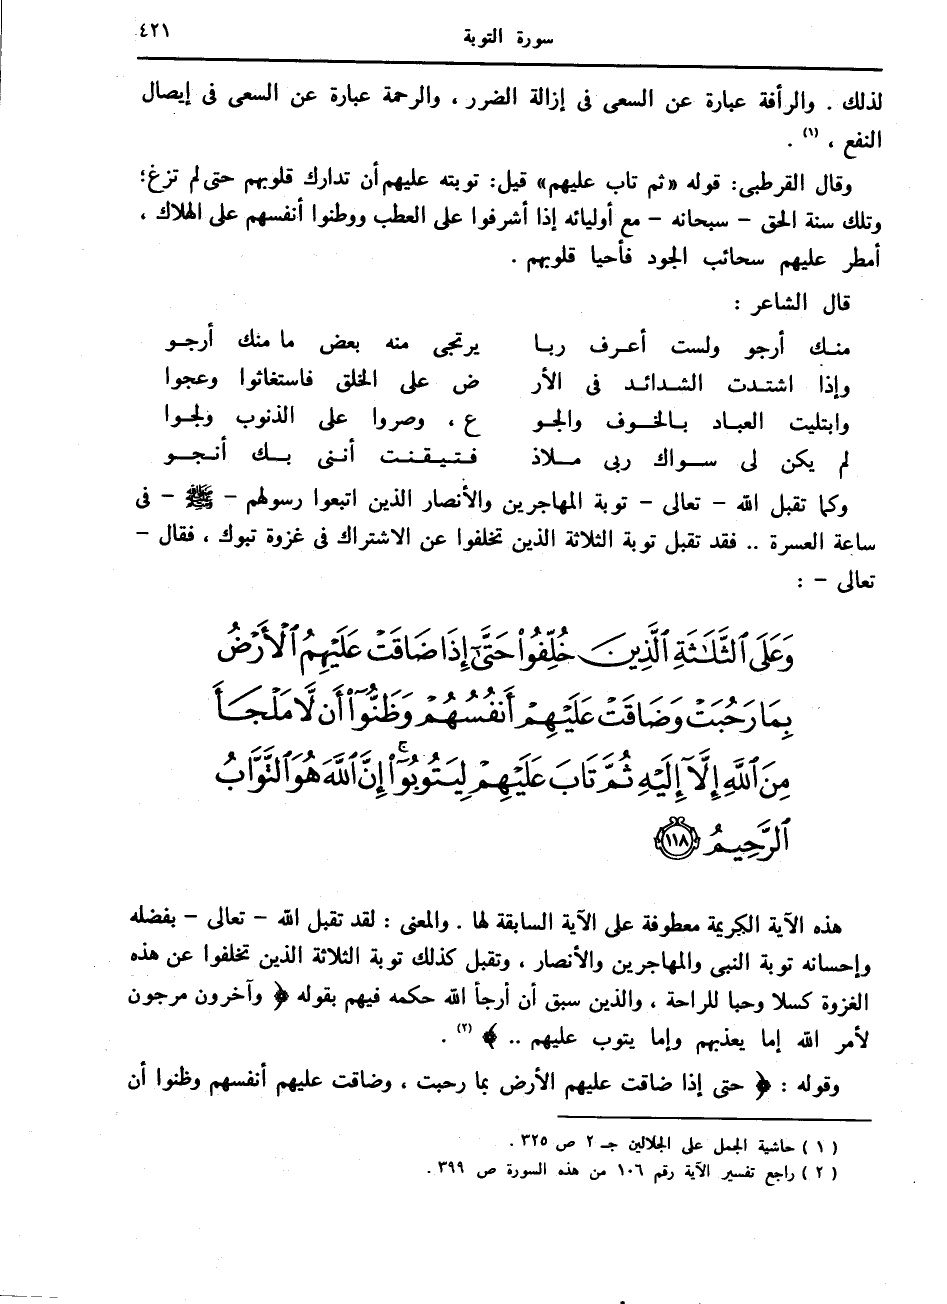 سورة التوبة
٤٢١
لذلك . والرأفة عبارة عن السعى فى إزالة الضرر ، والرحمة عبارة عن السعى فى إيصال
النفع ، (١) .
وقال القرطبى: قوله «ثم تاب عليهم» قيل: توبته عليهم أن تدارك قلوبهم حتى لم تزغ؛
وتلك سنة الحق - سبحانه - مع أوليائه إذا أشرفوا على العطب ووطنوا أنفسهم على الهلاك ،
أمطر عليهم سحائب الجود فأحيا قلوبهم .
قال الشاعر :
منك أرجو ولست أعرف ربا يرتجى منه بعض ما منك أرجو
وإذا اشتدت الشدائد فى الأر ض على الخلق فاستغاثوا وعجوا
وابتليت العباد بالخوف والجو ع ، وصروا على الذنوب ولجوا
لم يكن لى سواك ربى ملاذ فتيقنت أننى بك أنجو
وكما تقبل الله - تعالى - توبة المهاجرين والأنصار الذين اتبعوا رسولهم - ﷺ - فى
ساعة العسرة .. فقد تقبل توبة الثلاثة الذين تخلفوا عن الاشتراك فى غزوة تبوك ، فقال -
تعالى - :
وَعَلَى ٱلثَّلَٰثَةِ ٱلَّذِينَ خُلِّفُوا۟ حَتَّىٰٓ إِذَا ضَاقَتْ عَلَيْهِمُ ٱلْأَرْضُ
بِمَا رَحُبَتْ وَضَاقَتْ عَلَيْهِمْ أَنفُسُهُمْ وَظَنُّوٓا۟ أَن لَّا مَلْجَأَ
مِنَ ٱللَّهِ إِلَّآ إِلَيْهِ ثُمَّ تَابَ عَلَيْهِمْ لِيَتُوبُوٓا۟ ۚ إِنَّ ٱللَّهَ هُوَ ٱلتَّوَّابُ
ٱلرَّحِيمُ ١١٨
هذه الآية الكريمة معطوفة على الآية السابقة لها . والمعنى : لقد تقبل الله - تعالى - بفضله
وإحسانه توبة النبى والمهاجرين والأنصار ، وتقبل كذلك توبة الثلاثة الذين تخلفوا عن هذه
الغزوة كسلا وحبا للراحة ، والذين سبق أن أرجأ الله حكمه فيهم بقوله ﴿ وآخرون مرجون
لأمر الله إما يعذبهم وإما يتوب عليهم .. ﴾ (٢) .
وقوله : ﴿ حتى إذا ضاقت عليهم الأرض بما رحبت ، وضاقت عليهم أنفسهم وظنوا أن
(١) حاشية الجمل على الجلالين جـ ٢ ص ٣٢٥ .
(٢) راجع تفسير الآية رقم ١٠٦ من هذه السورة ص ٣٩٩ .